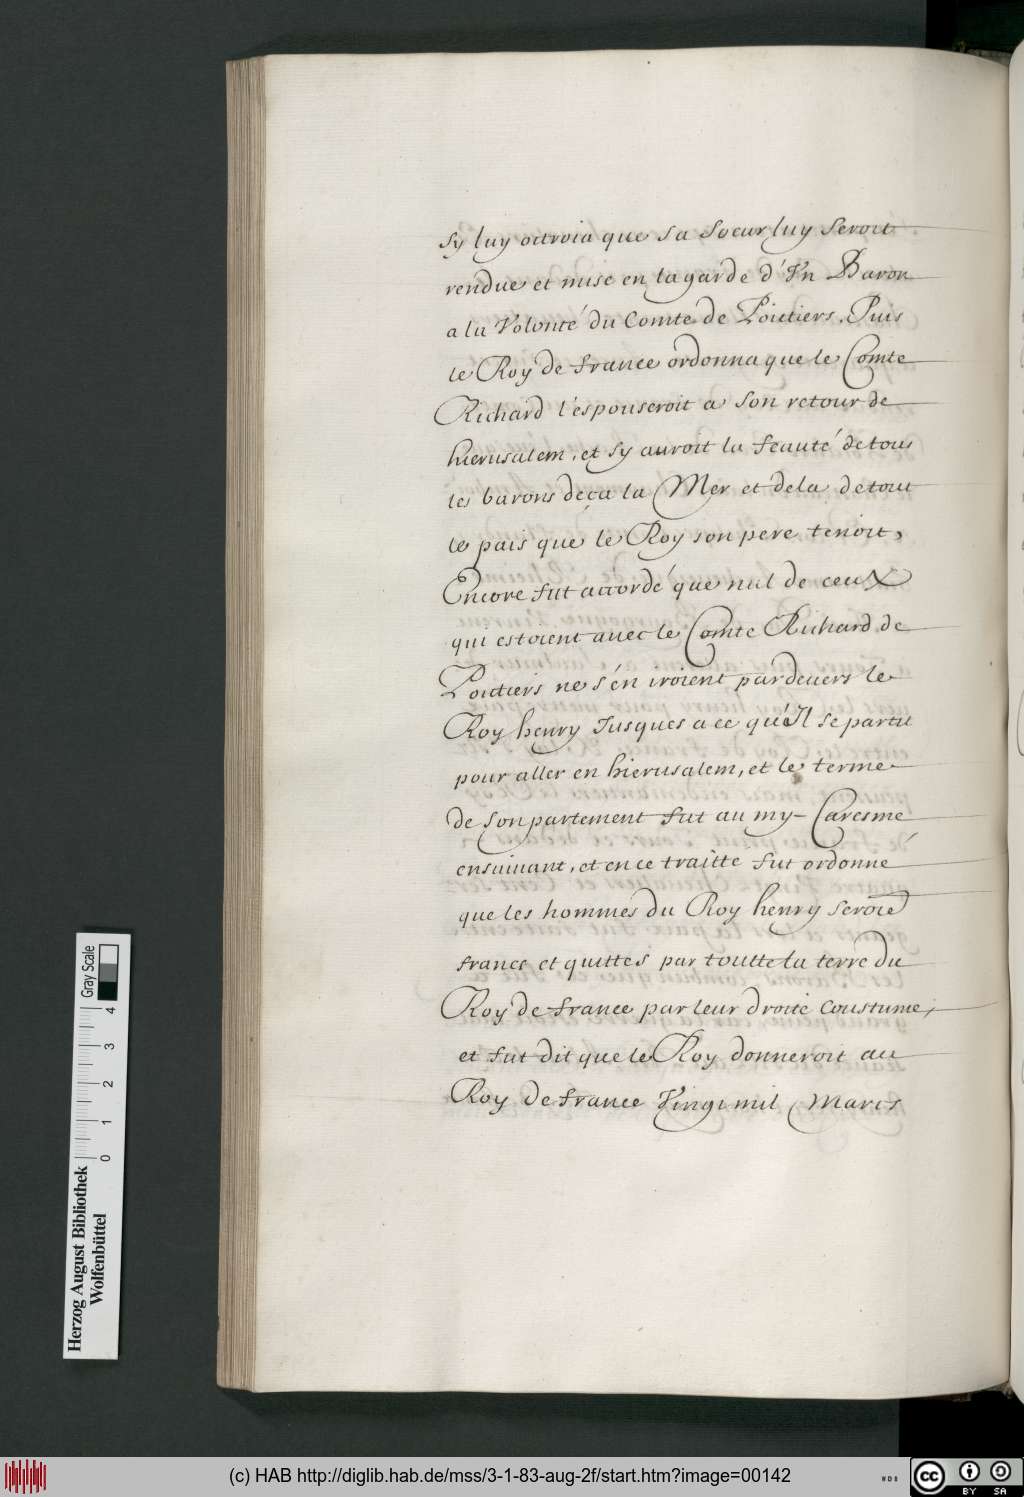 sy luy octroia que sa soeur luy seroit
rendue et mise en la garde d'Vn Baron
a lu Volonté du Comte de Poictiers. Puis
le Roy de france ordonna que le Comte
Richard l'espouseroit a son retour de
hierusalem, et sy auroit la feauté de tous
les barons deça la Mer et dela de tout
le pais que le Roy son pere tenoit,
Encore fut accordé que nul de ceux
qui estoient avec le Comte Richard de
Poictiers ne s'én iroient pardevers le
Roy henry Jusques a ce qu'Il se partit
pour aller en hierusalem, et le terme
de son partement fut au my-Caresme
ensuivant, et en ce traitte fut ordonné
que les hommes du Roy henry seroiet
francs et quittes par toutte la terre du
Roy de france par leur droite Coustume,
et fut dit que le Roy donneroit au
Roy de france Vingt mil Marcs
Herzog August Bibliothek
Wolfenbüttel
0 1 2 3 4
Gray Scale
(c) HAB http://diglib.hab.de/mss/3-1-83-aug-2f/start.htm?image=00142
cc BY SA